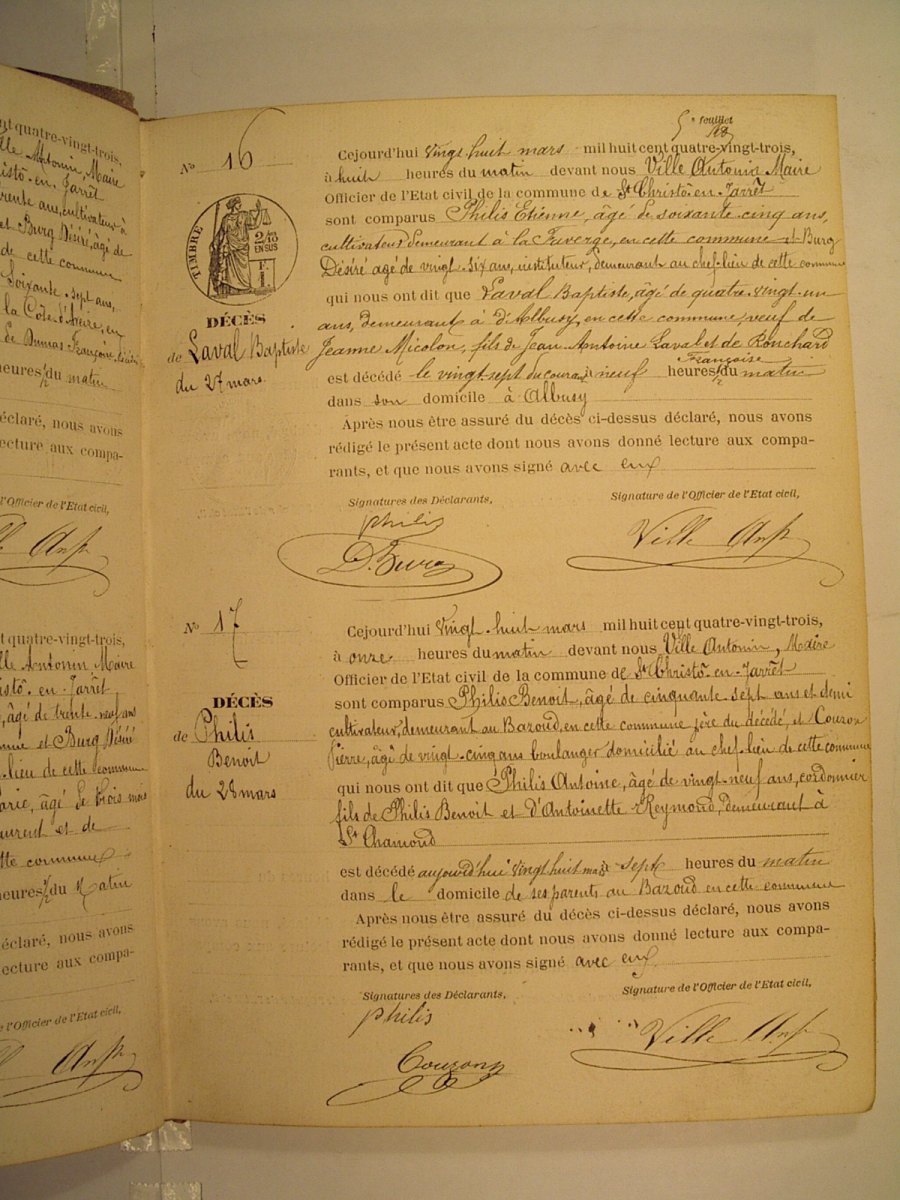 nt quatre-vingt-trois,
lle Antonin, Maire
isto-en-Jarrêt
trente ans, cultivateur à
et Burg Désiré, âgé de
de cette commune
Soixante-sept ans,
la Côte d' en
de Dumas Françoise
heures ½ du matin
éclaré, nous avons
ecture aux compa-
l'Officier de l'Etat civil,
lle Ant
nt quatre-vingt-trois,
lle Antonin Maire
istô-en-Jarrêt
, âgé de trente-neuf ans
nne et Burg Désiré
-lieu de cette commune
arie, âgé de trois mois
aurent et de
tte commune
heures ½ du Matin
éclaré, nous avons
ecture aux compa-
e l'Officier de l'Etat civil,
Ant
5e feuillet
No 16
TIMBRE
2/10
EN SUS
F.
1.
DÉCÈS
de Laval Baptiste
du 27 mars
Cejourd'hui vingt huit mars mil huit cent quatre-vingt-trois,
à huit heures du matin devant nous Ville Antonin Maire
Officier de l'Etat civil de la commune de St Christô-en-Jarrêt
sont comparus Philis Etienne, âgé de soixante cinq ans,
cultivateur demeurant à la Faverge, en cette commune et Burg
Désiré agé de vingt-six ans, instituteur, demeurant au chef-lieu de cette commune
qui nous ont dit que Laval Baptiste, âgé de quatre-vingt-un
ans, demeurant à d'Albusy, en cette commune, veuf de
Jeanne Micolon, fils de Jean Antoine Laval et de Ronchard
Françoise
est décédé le vingt-sept du courant à neuf heures ½ du matin
dans son domicile à Albusy
Après nous être assuré du décès ci-dessus déclaré, nous avons
rédigé le présent acte dont nous avons donné lecture aux compa-
rants, et que nous avons signé avec eux
Signatures des Déclarants,
Signature de l'Officier de l'Etat civil,
philis
D. Burg
Ville Ant
No 17
DÉCÈS
de Philis
Benoit
du 28 mars
Cejourd'hui Vingt-huit mars mil huit cent quatre-vingt-trois,
à onze heures du matin devant nous Ville Antonin, Maire
Officier de l'Etat civil de la commune de St Christô-en-Jarrêt
sont comparus Philis Benoit, âgé de cinquante sept ans et demi
cultivateur, demeurant au Bazoud, en cette commune père du décédé, et Couzon
Pierre, âgé de vingt-cinq ans boulanger domicilié au chef-lieu de cette commune
qui nous ont dit que Philis Antoine, âgé de vingt-neuf ans, cordonnier
fils de Philis Benoit et d'Antoinette Reymond, demeurant à
St Chamond
est décédé aujourd'hui vingt huit mars à sept heures du matin
dans le domicile de ses parents au Bazoud en cette commune
Après nous être assuré du décès ci-dessus déclaré, nous avons
rédigé le présent acte dont nous avons donné lecture aux compa-
rants, et que nous avons signé avec eux
Signatures des Déclarants,
Signature de l'Officier de l'Etat civil,
philis
Couzon
Ville Ant